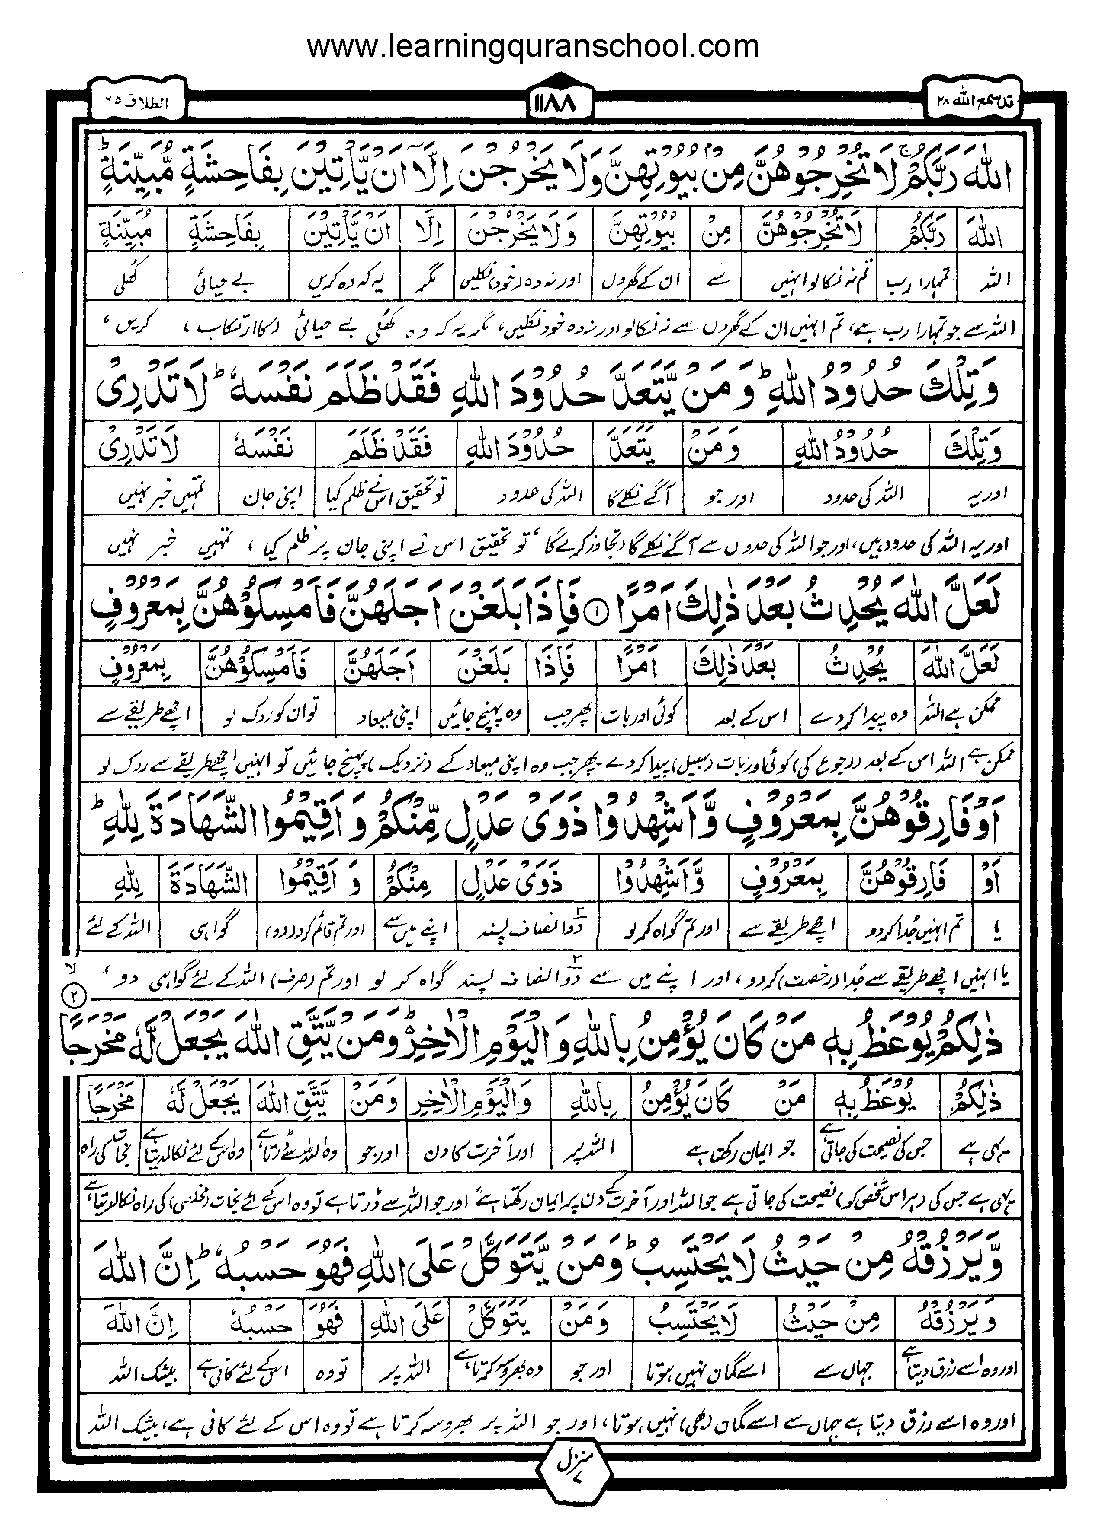 www.learningquranschool.com
قد سمع الله ٢٨
١١٨٨
الطلاق ٦٥
اللّٰهَ رَبَّكُمْ ۚ لَا تُخْرِجُوْهُنَّ مِنْۢ بُيُوْتِهِنَّ وَلَا يَخْرُجْنَ اِلَّآ اَنْ يَّاْتِيْنَ بِفَاحِشَةٍ مُّبَيِّنَةٍ ؕ
اللّٰهَ رَبَّكُمْ لَا تُخْرِجُوْهُنَّ مِنْ بُيُوْتِهِنَّ وَلَا يَخْرُجْنَ اِلَّا اَنْ يَّاْتِيْنَ بِفَاحِشَةٍ مُبَيِّنَةٍ
اللہ تمہارا رب تم نہ نکالو انہیں سے ان کے گھروں اور نہ وہ خود نکلیں مگر یہ کہ وہ کریں بے حیائی کھلی
اللہ سے جو تمہارا رب ہے، تم انہیں ان کے گھروں سے نہ نکالو اور نہ وہ خود نکلیں، مگر یہ کہ وہ کھلی بے حیائی (کا ارتکاب) کریں،
وَتِلْكَ حُدُوْدُ اللّٰهِ ؕ وَمَنْ يَّتَعَدَّ حُدُوْدَ اللّٰهِ فَقَدْ ظَلَمَ نَفْسَهٗ ؕ لَا تَدْرِىْ
وَتِلْكَ حُدُوْدُ اللّٰهِ وَمَنْ يَتَعَدَّ حُدُوْدَ اللّٰهِ فَقَدْ ظَلَمَ نَفْسَهٗ لَا تَدْرِىْ
اور یہ اللہ کی حدود اور جو آگے نکلے گا اللہ کی حدود تو تحقیق اس نے ظلم کیا اپنی جان تمہیں خبر نہیں
اور یہ اللہ کی حدود ہیں، اور جو اللہ کی حدوں سے آگے نکلے گا (تجاوز کرے گا) تو تحقیق اس نے اپنی جان پر ظلم کیا، تمہیں خبر نہیں
لَعَلَّ اللّٰهَ يُحْدِثُ بَعْدَ ذٰلِكَ اَمْرًا ۝۱ فَاِذَا بَلَغْنَ اَجَلَهُنَّ فَاَمْسِكُوْهُنَّ بِمَعْرُوْفٍ
لَعَلَّ اللّٰهَ يُحْدِثُ بَعْدَ ذٰلِكَ اَمْرًا فَاِذَا بَلَغْنَ اَجَلَهُنَّ فَاَمْسِكُوْهُنَّ بِمَعْرُوْفٍ
ممکن ہے اللہ وہ پیدا کر دے اس کے بعد کوئی اور بات پھر جب وہ پہنچ جائیں اپنی میعاد تو ان کو روک لو اچھے طریقے سے
ممکن ہے اللہ اس کے بعد (رجوع کی) کوئی اور بات (سبیل) پیدا کر دے پھر جب وہ اپنی میعاد کے (نزدیک) پہنچ جائیں تو انہیں اچھے طریقے سے روک لو
اَوْ فَارِقُوْهُنَّ بِمَعْرُوْفٍ وَّاَشْهِدُوْا ذَوَىْ عَدْلٍ مِّنْكُمْ وَاَقِيْمُوا الشَّهَادَةَ لِلّٰهِ ؕ
اَوْ فَارِقُوْهُنَّ بِمَعْرُوْفٍ وَّاَشْهِدُوْا ذَوَىْ عَدْلٍ مِنْكُمْ وَاَقِيْمُوا الشَّهَادَةَ لِلّٰهِ
یا تم انہیں جدا کر دو اچھے طریقے سے اور تم گواہ کر لو دو ۲ انصاف پسند اپنے میں سے اور تم قائم کرو (دو) گواہی اللہ کے لئے
یا انہیں اچھے طریقے سے جدا (رخصت) کر دو، اور اپنے میں سے دو ۲ انصاف پسند گواہ کر لو اور تم (صرف) اللہ کے لئے گواہی دو،
۲
ذٰلِكُمْ يُوْعَظُ بِهٖ مَنْ كَانَ يُؤْمِنُ بِاللّٰهِ وَالْيَوْمِ الْاٰخِرِ ؕ وَمَنْ يَّتَّقِ اللّٰهَ يَجْعَلْ لَّهٗ مَخْرَجًا
ذٰلِكُمْ يُوْعَظُ بِهٖ مَنْ كَانَ يُؤْمِنُ بِاللّٰهِ وَالْيَوْمِ الْاٰخِرِ وَمَنْ يَتَّقِ اللّٰهَ يَجْعَلْ لَهٗ مَخْرَجًا
یہی ہے جس کی نصیحت کی جاتی ہے جو ایمان رکھتا ہے اللہ پر اور آخرت کا دن اور جو وہ اللہ سے ڈرتا ہے وہ اس کے لئے نکال دیتا ہے نجات کی راہ
یہی ہے جس کی (ہر اس شخص کو) نصیحت کی جاتی ہے جو اللہ اور آخرت کے دن پر ایمان رکھتا ہے اور جو اللہ سے ڈرتا ہے تو وہ اس کے لئے نجات (مخلصی) کی راہ نکال دیتا ہے
وَّيَرْزُقْهُ مِنْ حَيْثُ لَا يَحْتَسِبُ ؕ وَمَنْ يَّتَوَكَّلْ عَلَى اللّٰهِ فَهُوَ حَسْبُهٗ ؕ اِنَّ اللّٰهَ
وَيَرْزُقْهُ مِنْ حَيْثُ لَا يَحْتَسِبُ وَمَنْ يَتَوَكَّلْ عَلَى اللّٰهِ فَهُوَ حَسْبُهٗ اِنَّ اللّٰهَ
اور وہ اسے رزق دیتا ہے جہاں سے اسے گمان نہیں ہوتا اور جو وہ بھروسہ کرتا ہے اللہ پر تو وہ اس کے لئے کافی ہے بیشک اللہ
اور وہ اسے رزق دیتا ہے جہاں سے اسے گمان (بھی) نہیں ہوتا، اور جو اللہ پر بھروسہ کرتا ہے تو وہ اس کے لئے کافی ہے، بیشک اللہ
منزل ٧